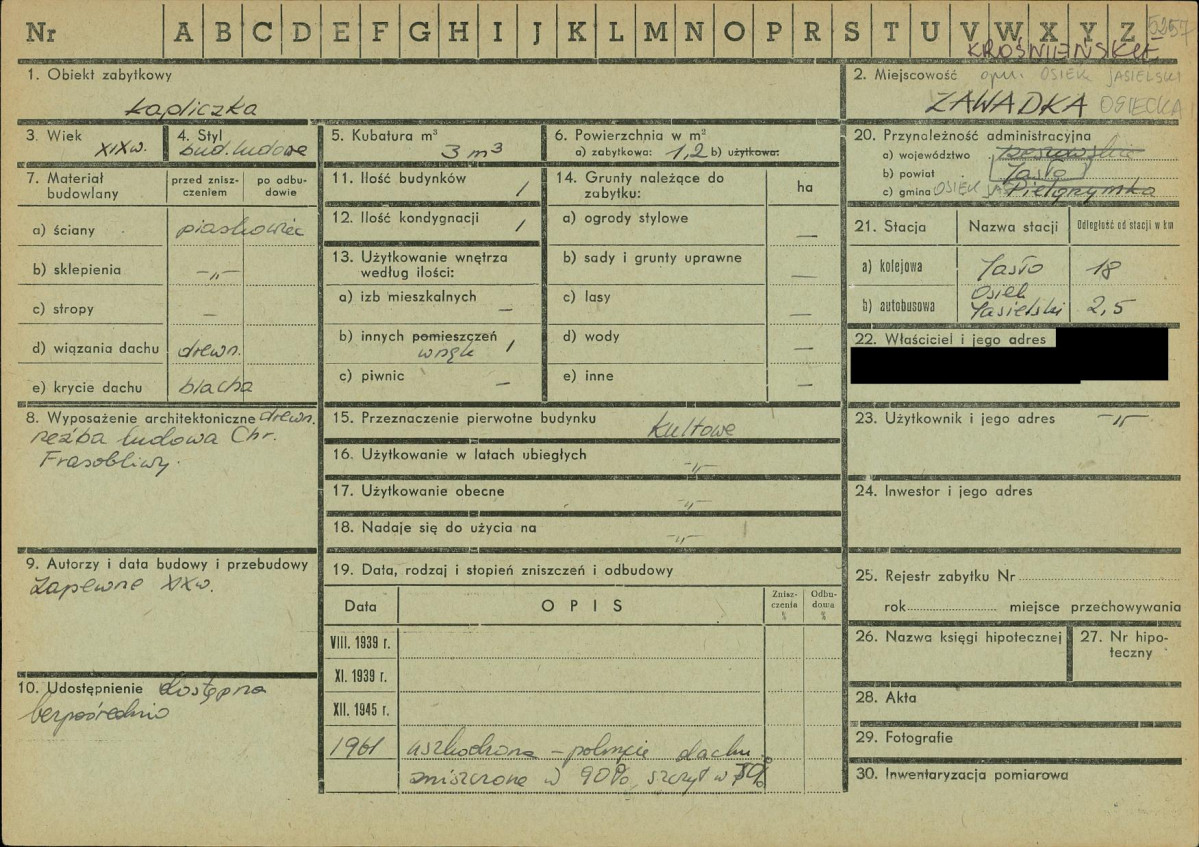 Nr A B C D E F G H I J K L M N O P R S T U V W X Y Z 5257
KROŚNIEŃSKIE
1. Obiekt zabytkowy
kapliczka
2. Miejscowość gm. OSIEK JASIELSKI
ZAWADKA OSIECKA
3. Wiek
XIXw.
4. Styl
bud. ludowe
5. Kubatura m³
3 m³
6. Powierzchnia w m²
a) zabytkowa: 1,2 b) użytkowa:
7. Materiał budowlany
przed zniszczeniem
po odbudowie
a) ściany piaskowiec
b) sklepienia -„-
c) stropy –
d) wiązania dachu drewn.
e) krycie dachu blacha
8. Wyposażenie architektoniczne drewn.
rzeźba ludowa Chr.
Frasobliwy.
9. Autorzy i data budowy i przebudowy
Zapewne XIXw.
10. Udostępnienie dostępna
bezpośrednio
11. Ilość budynków 1
12. Ilość kondygnacji 1
13. Użytkowanie wnętrza
według ilości:
a) izb mieszkalnych –
b) innych pomieszczeń
wnęk 1
c) piwnic –
14. Grunty należące do
zabytku:
ha
a) ogrody stylowe –
b) sady i grunty uprawne –
c) lasy –
d) wody –
e) inne –
15. Przeznaczenie pierwotne budynku kultowe
16. Użytkowanie w latach ubiegłych -„-
17. Użytkowanie obecne -„-
18. Nadaje się do użycia na -„-
19. Data, rodzaj i stopień zniszczeń i odbudowy
Data
OPIS
Zniszczenia %
Odbudowa %
VIII. 1939 r.
XI. 1939 r.
XII. 1945 r.
1961 uszkodzona – połacie dachu
zniszczone w 90%, szczyt w 50%
20. Przynależność administracyjna
a) województwo rzeszowskie
b) powiat Jasło
c) gmina OSIEK JAS. Pielgrzymka
21. Stacja
Nazwa stacji
Odległość od stacji w km
a) kolejowa Jasło 18
b) autobusowa Osiek
Jasielski 2,5
22. Właściciel i jego adres
23. Użytkownik i jego adres -„-
24. Inwestor i jego adres
25. Rejestr zabytku Nr
rok miejsce przechowywania
26. Nazwa księgi hipotecznej
27. Nr hipoteczny
28. Akta
29. Fotografie
30. Inwentaryzacja pomiarowa